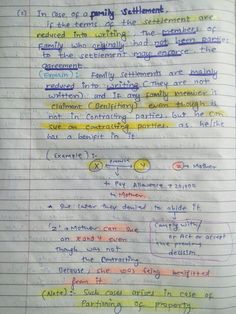 (c) In case of a family Settlement.
If the terms of the settlement are
reduced into writing. The members of
Family who originally had not been parties
to the settlement may enforce the
Agreement.
(Explain) :- Family settlements are mainly
reduced into writing (They are not
written) and if any family member is
claimant (Benifitary) even though is
not in contracting parties. But he can
sue on contracting parties as he/she
has a benefit in it
(Example) :-
X Promise Y Z → Mother
→ Pay Allowance ₹20,000
→ Mother.
• But later they denied to abide it
'Z' → Mother can sue
on X and Y even
though was not
the contracting
Because, she was being benifitted
from it
Comply with/
an Act or accept
the
decision
(Note) :- Such cases arises in case of
Partioning of property.